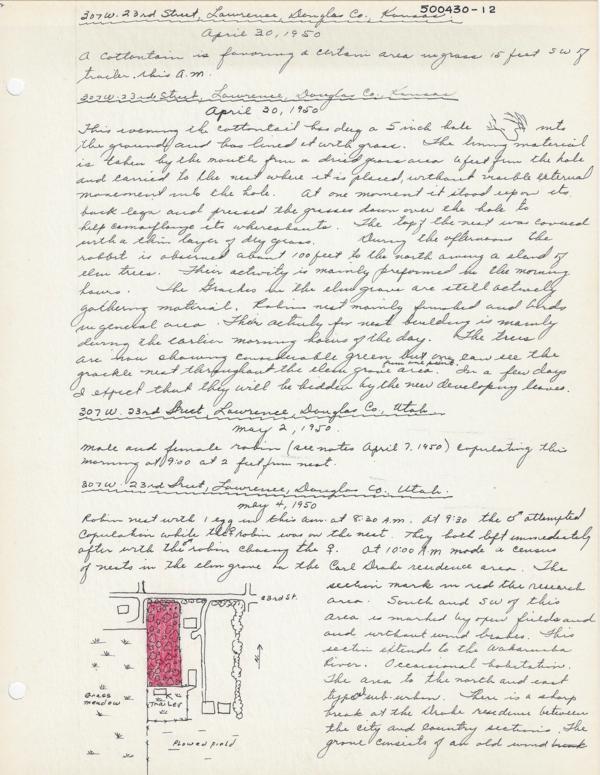 500430-12
307 W. 23rd Street, Lawrence, Douglas Co., Kansas.
April 30, 1950
A Cottontain is favoring a certain area in grass 15 feet SW of
trailer this A.M.
307 W. 23rd Street, Lawrence, Douglas Co., Kansas
April 30, 1950
This evening the cottontail has dug a 5 inch hole into
the ground and has lined it with grass. The lining material
is taken by the mouth from a dried grass area 6 feet from the hole
and carried to the nest where it is placed, without visible external
movement into the hole. At one moment it stood upon its
back legs and pressed the grasses down over the hole to
help camouflange its whereabouts. The top of the nest was covered
with a thin layer of dry grass. During the afternoons the
rabbit is observed about 100 feet to the north among a stand of
elm trees. Their activity is mainly preformed in the morning
hours. The Grackles in the elm grove are still actively
gathering material. Robins nest mainly finished and birds
in general area. Their activity for nest building is mainly
during the earlier morning hours of the day. The trees
are now showing considerable green but one can see the
grackle nest throughout the elm grove area from one point. In a few days
I expect that they will be hidden by the new developing leaves.
307 W. 23rd Street, Lawrence, Douglas Co., Utah
May 2, 1950.
Male and female robin (see notes April 7, 1950) copulating this
morning at 9:00 at 2 feet from nest.
307 W. 23rd Street, Lawrence, Douglas Co., Utah.
May 4, 1950
Robin nest with 1 egg in this am. at 8:30 A.M. At 9:30 the ♂ attempted
copulation while the ♀ robin was on the nest. They both left immediately
after with the ♂ robin chasing the ♀. At 10:00 A.M made a census
of nests in the elm grove in the Carl Drake residence area. The
section mark in red the research
area. South and SW of this
area is marked by open fields and
and without wind breaks. This
section extends to the Wakarusa
River. Occasional habitation.
The area to the north and east
type of sub-urban. There is a sharp
break at the Drake residence between
the city and country sections. The
grove consists of an old wind break
23rd St.
N
Grass
meadow
Trailer
Plowed field